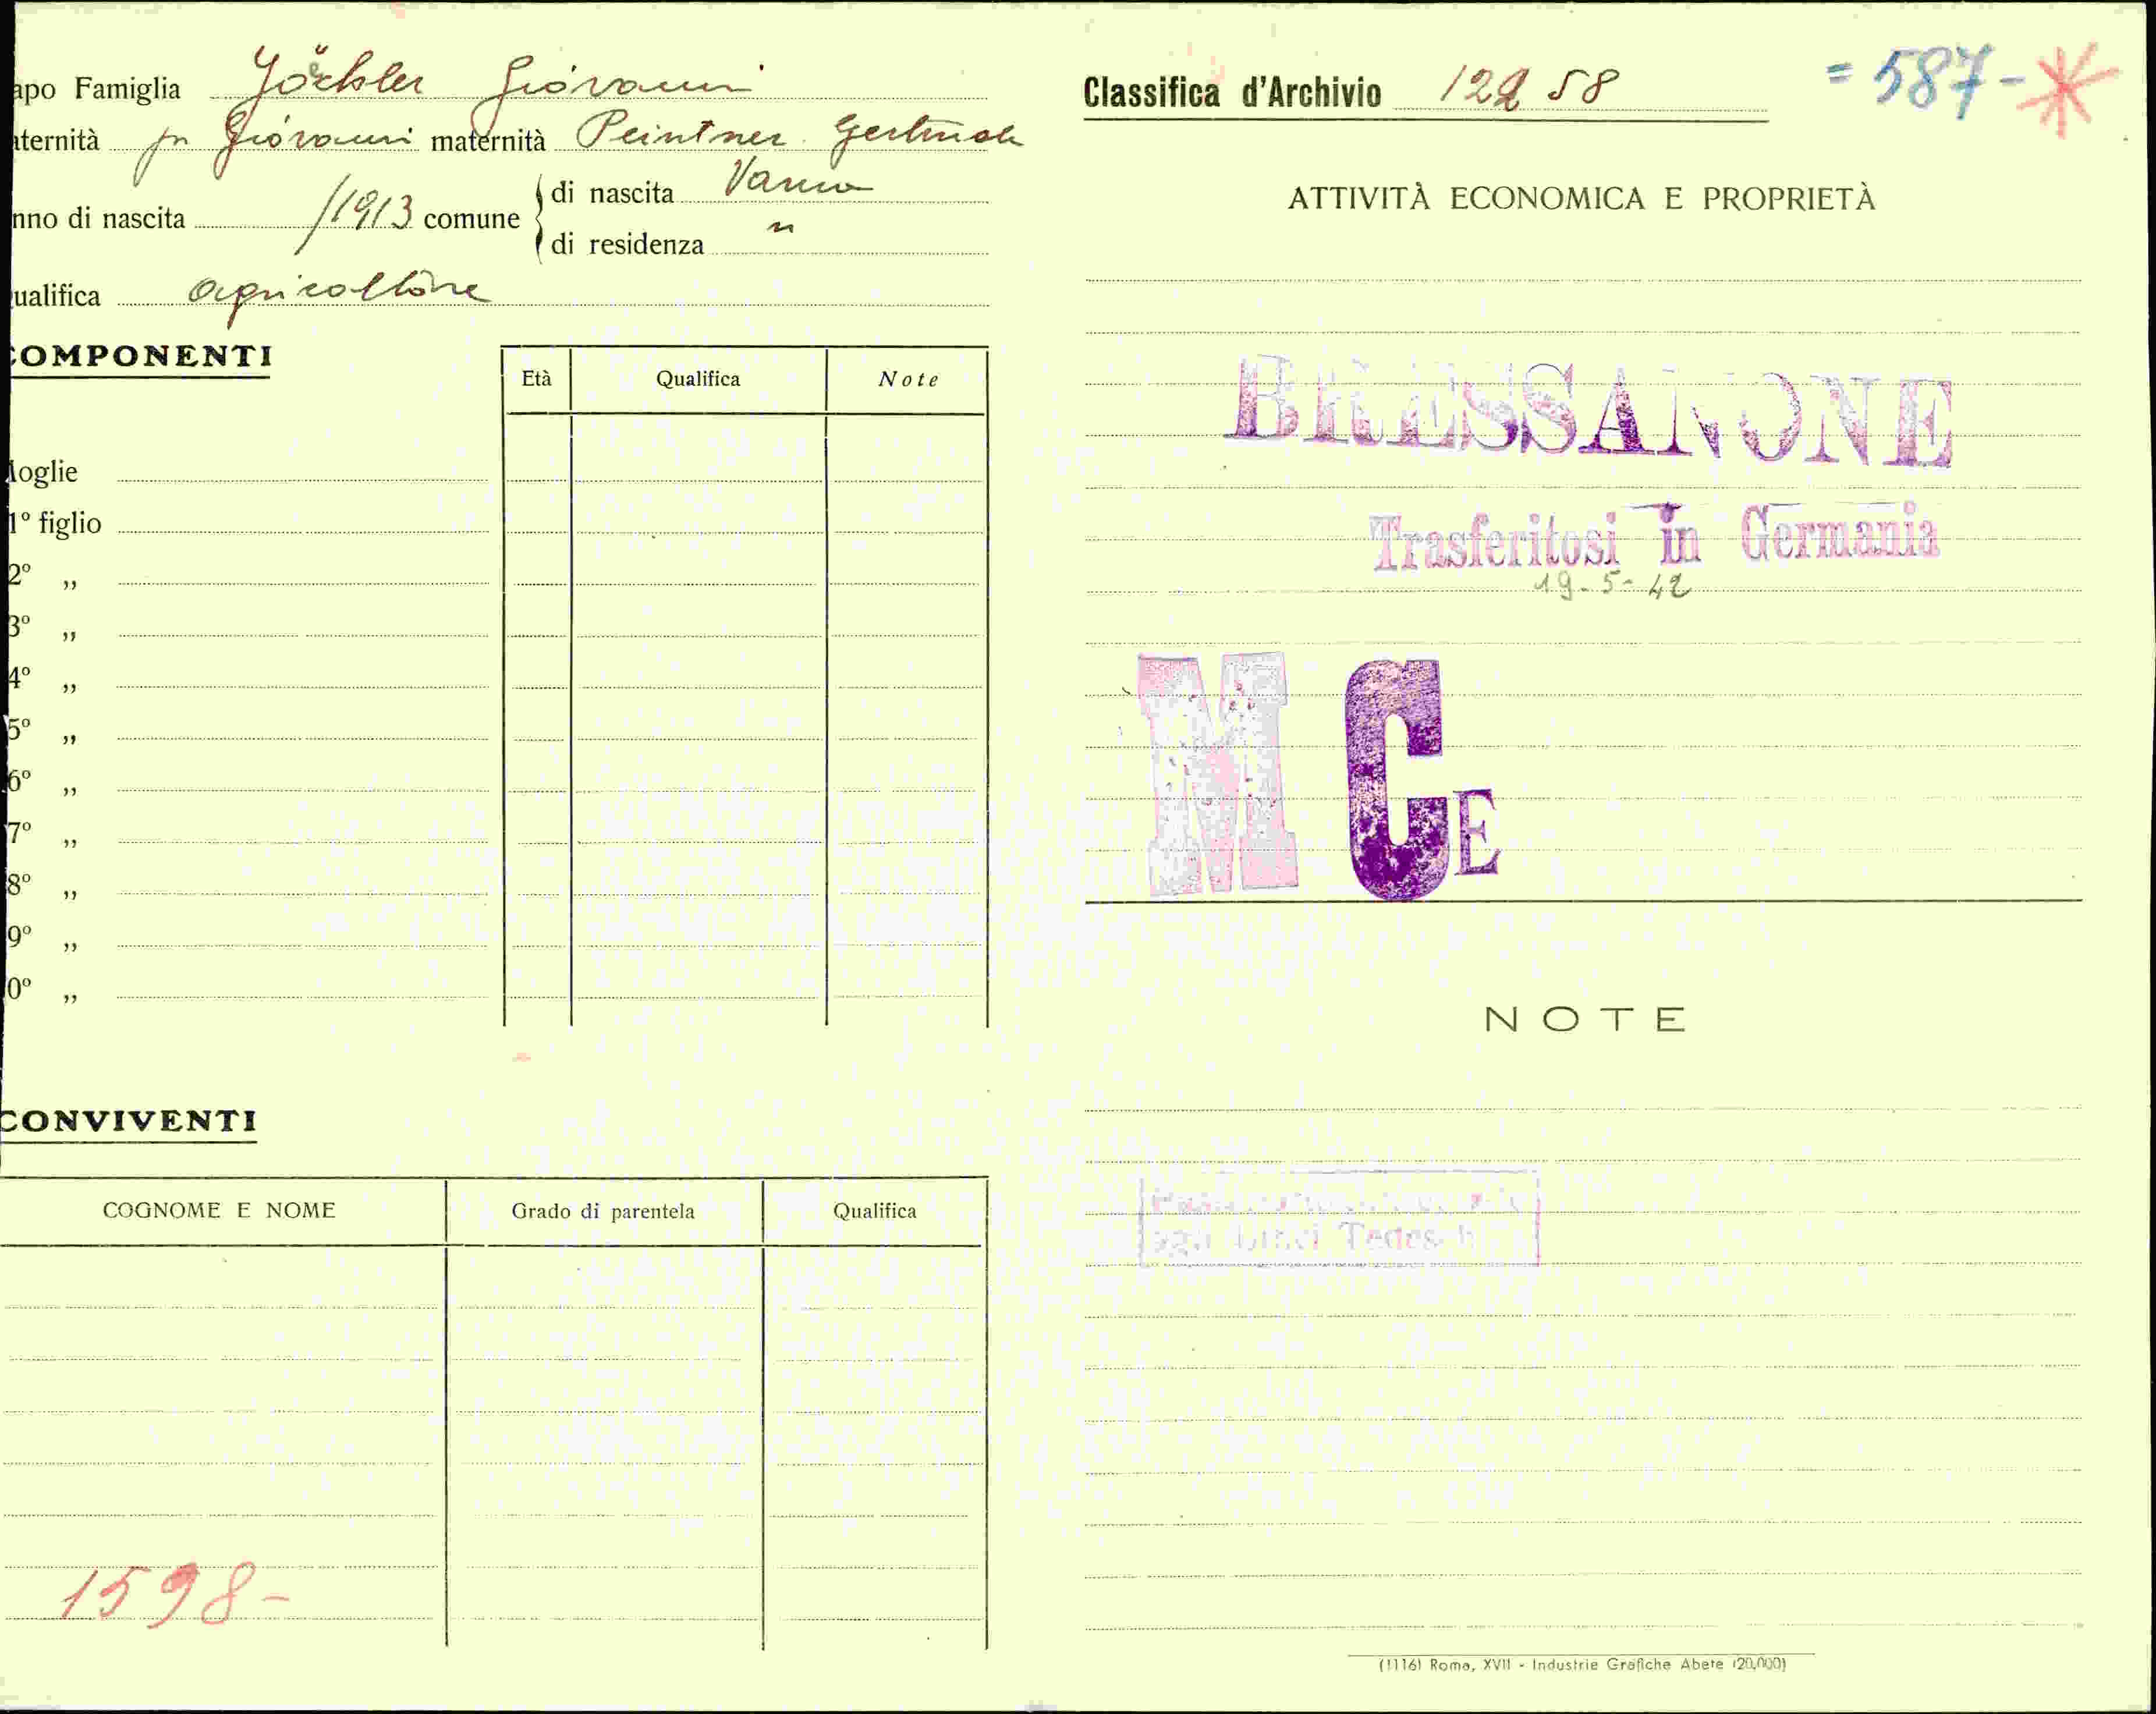 apo Famiglia Jöchler Giovanni
aternità fu Giovanni maternità Peintner Gertrude
nno di nascita /1913 comune
di nascita Varna
di residenza "
ualifica agricoltore
COMPONENTI
Età Qualifica Note
Moglie
1º figlio
2º „
3º „
4º „
5º „
6º „
7º „
8º „
9º „
0º „
CONVIVENTI
COGNOME E NOME Grado di parentela Qualifica
1598-
Classifica d'Archivio 12258 = 587-*
ATTIVITÀ ECONOMICA E PROPRIETÀ
BRESSANONE
Trasferitosi in Germania
19-5-42
M C E
NOTE
(1116) Roma, XVII - Industrie Grafiche Abete (20,000)